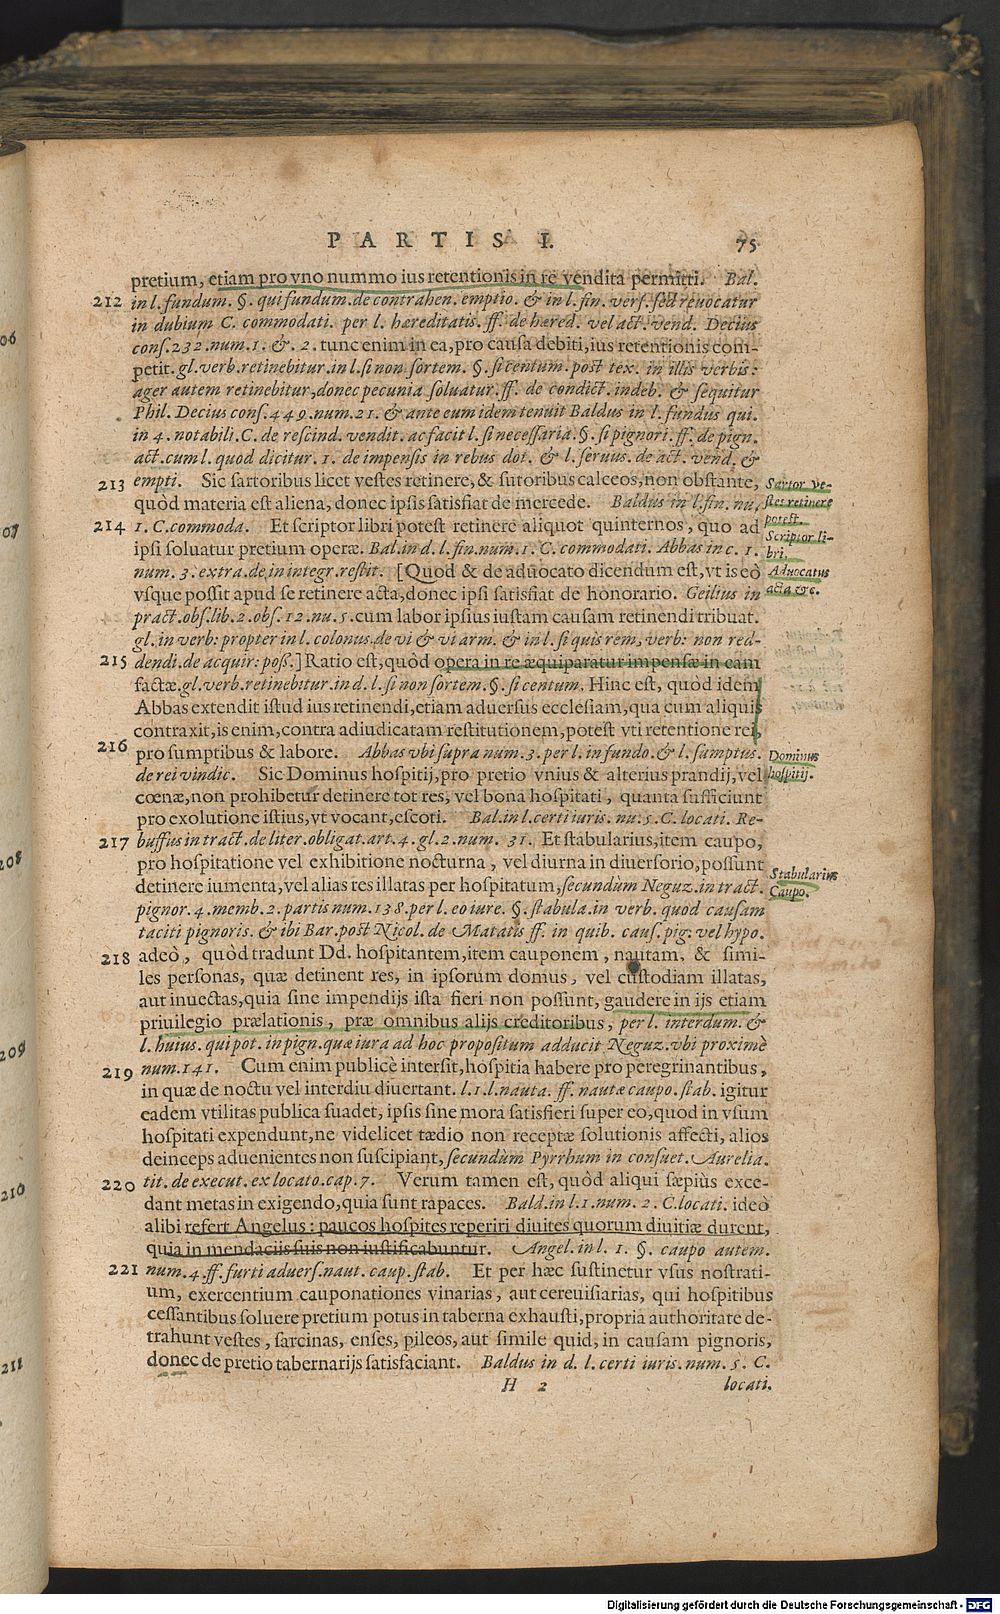 PARTIS I. 75
pretium, etiam pro vno nummo ius retentionis in re vendita permitti. Bal.
212 in l. fundum. §. qui fundum. de contrahen. emptio. & in l. fin. vers. sed reuocatur
in dubium C. commodati. per l. hæreditatis. ff. de hæred. vel act. vend. Decius
cons. 232. num. 1. &. 2. tunc enim in ea, pro causa debiti, ius retentionis com-
petit. gl. verb. retinebitur. in l. si non sortem. §. si centum. post tex. in illis verbis:
ager autem retinebitur, donec pecunia soluatur. ff. de condict. indeb. & sequitur
Phil. Decius cons. 449. num. 21. & ante eum idem tenuit Baldus in l. fundus qui.
in 4. notabili. C. de rescind. vendit. ac facit l. si necessaria. §. si pignori. ff. de pign.
act. cum l. quod dicitur. 1. de impensis in rebus dot. & l. seruus. de act. vend. &
213 empti. Sic sartoribus licet vestes retinere, & sutoribus calceos, non obstante,
quòd materia est aliena, donec ipsis satisfiat de mercede. Baldus in l. fin. nu.
214 1. C. commoda. Et scriptor libri potest retinere aliquot quinternos, quo ad
ipsi soluatur pretium operæ. Bal. in d. l. fin. num. 1. C. commodati. Abbas in c. 1.
num. 3. extra. de in integr. restit. [Quod & de aduocato dicendum est, vt is eò
vsque possit apud se retinere acta, donec ipsi satisfiat de honorario. Geilius in
pract. obs. lib. 2. obs. 12. nu. 5. cum labor ipsius iustam causam retinendi tribuat.
gl. in verb: propter in l. colonus. de vi & vi arm. & in l. si quis rem, verb: non red-
215 dendi. de acquir: poss.] Ratio est, quòd opera in re æquiparatur impensæ in eam
factæ. gl. verb. retinebitur. in d. l. si non sortem. §. si centum. Hinc est, quòd idem
Abbas extendit istud ius retinendi, etiam aduersus ecclesiam, qua cum aliquis
contraxit, is enim, contra adiudicatam restitutionem, potest vti retentione rei,
216 pro sumptibus & labore. Abbas vbi supra num. 3. per l. in fundo. & l. sumptus.
de rei vindic. Sic Dominus hospitij, pro pretio vnius & alterius prandij, vel
cœnæ, non prohibetur detinere tot res, vel bona hospitati, quanta sufficiunt
pro exolutione istius, vt vocant, escoti. Bal. in l. certi iuris. nu. 5. C. locati. Re-
217 buffus in tract. de liter. obligat. art. 4. gl. 2. num. 31. Et stabularius, item caupo,
pro hospitatione vel exhibitione nocturna, vel diurna in diuersorio, possunt
detinere iumenta, vel alias res illatas per hospitatum, secundùm Neguz. in tract.
pignor. 4. memb. 2. partis num. 138. per l. eo iure. §. stabula. in verb. quod causam
taciti pignoris. & ibi Bar. post Nicol. de Matatis ff. in quib. caus. pig. vel hypo.
218 adeò, quòd tradunt Dd. hospitantem, item cauponem, nautam, & simi-
les personas, quæ detinent res, in ipsorum domus, vel custodiam illatas,
aut inuectas, quia sine impendijs ista fieri non possunt, gaudere in ijs etiam
priuilegio prælationis, præ omnibus alijs creditoribus, per l. interdum. &
l. huius. qui pot. in pign. quæ iura ad hoc propositum adducit Neguz. vbi proximè
219 num. 141. Cum enim publicè intersit, hospitia habere pro peregrinantibus,
in quæ de noctu vel interdiu diuertant. l. 1. l. nauta. ff. nautæ caupo. stab. igitur
eadem vtilitas publica suadet, ipsis sine mora satisfieri super eo, quod in vsum
hospitati expendunt, ne videlicet tædio non receptæ solutionis affecti, alios
deinceps aduenientes non suscipiant, secundùm Pyrrhum in consuet. Aurelia.
220 tit. de execut. ex locato. cap. 7. Verum tamen est, quòd aliqui sæpiùs exce-
dant metas in exigendo, quia sunt rapaces. Bald. in l. 1. num. 2. C. locati. ideò
alibi refert Angelus: paucos hospites reperiri diuites quorum diuitiæ durent,
quia in mendaciis suis non iustificabuntur. Angel. in l. 1. §. caupo autem.
221 num. 4. ff. furti aduers. naut. caup. stab. Et per hæc sustinetur vsus nostrati-
um, exercentium cauponationes vinarias, aut cereuisiarias, qui hospitibus
cessantibus soluere pretium potus in taberna exhausti, propria authoritate de-
trahunt vestes, sarcinas, enses, pileos, aut simile quid, in causam pignoris,
donec de pretio tabernarijs satisfaciant. Baldus in d. l. certi iuris. num. 5. C.
H 2 locati.
Sartor ve-
stes retinere
potest.
Scriptor li-
bri.
Aduocatus
acta &c.
Dominus
hospitij.
Stabularius
Caupo.
06
07
208
209
210
211
Digitalisierung gefördert durch die Deutsche Forschungsgemeinschaft - DFG